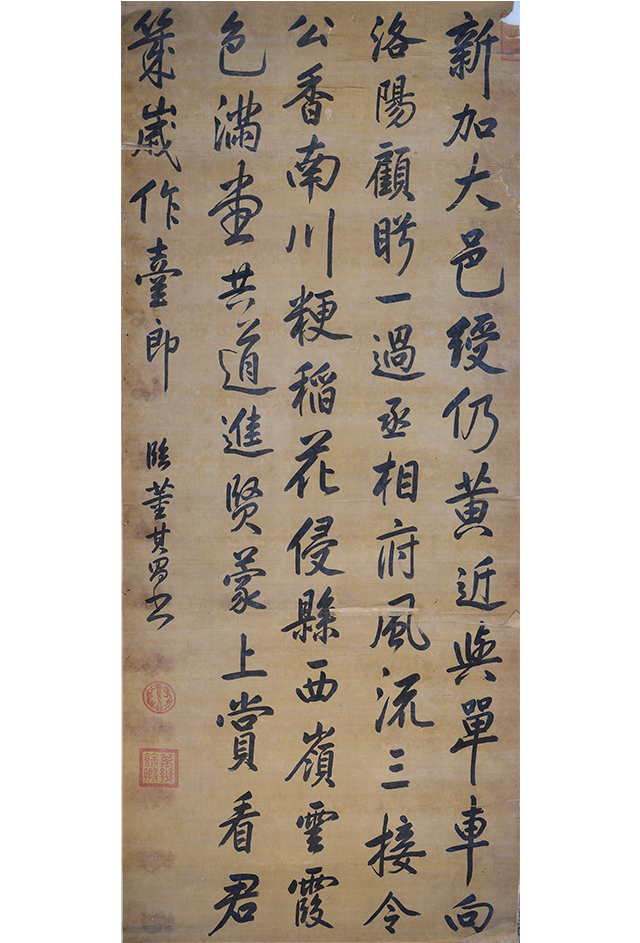 新加大邑綬仍黄近與單車向
洛陽顧眄一過丞相府風流三接令
公香南川粳稻花侵縣西嶺雲霞
色滿堂共道進賢蒙上賞看君
幾歲作臺郎
臨董其昌書